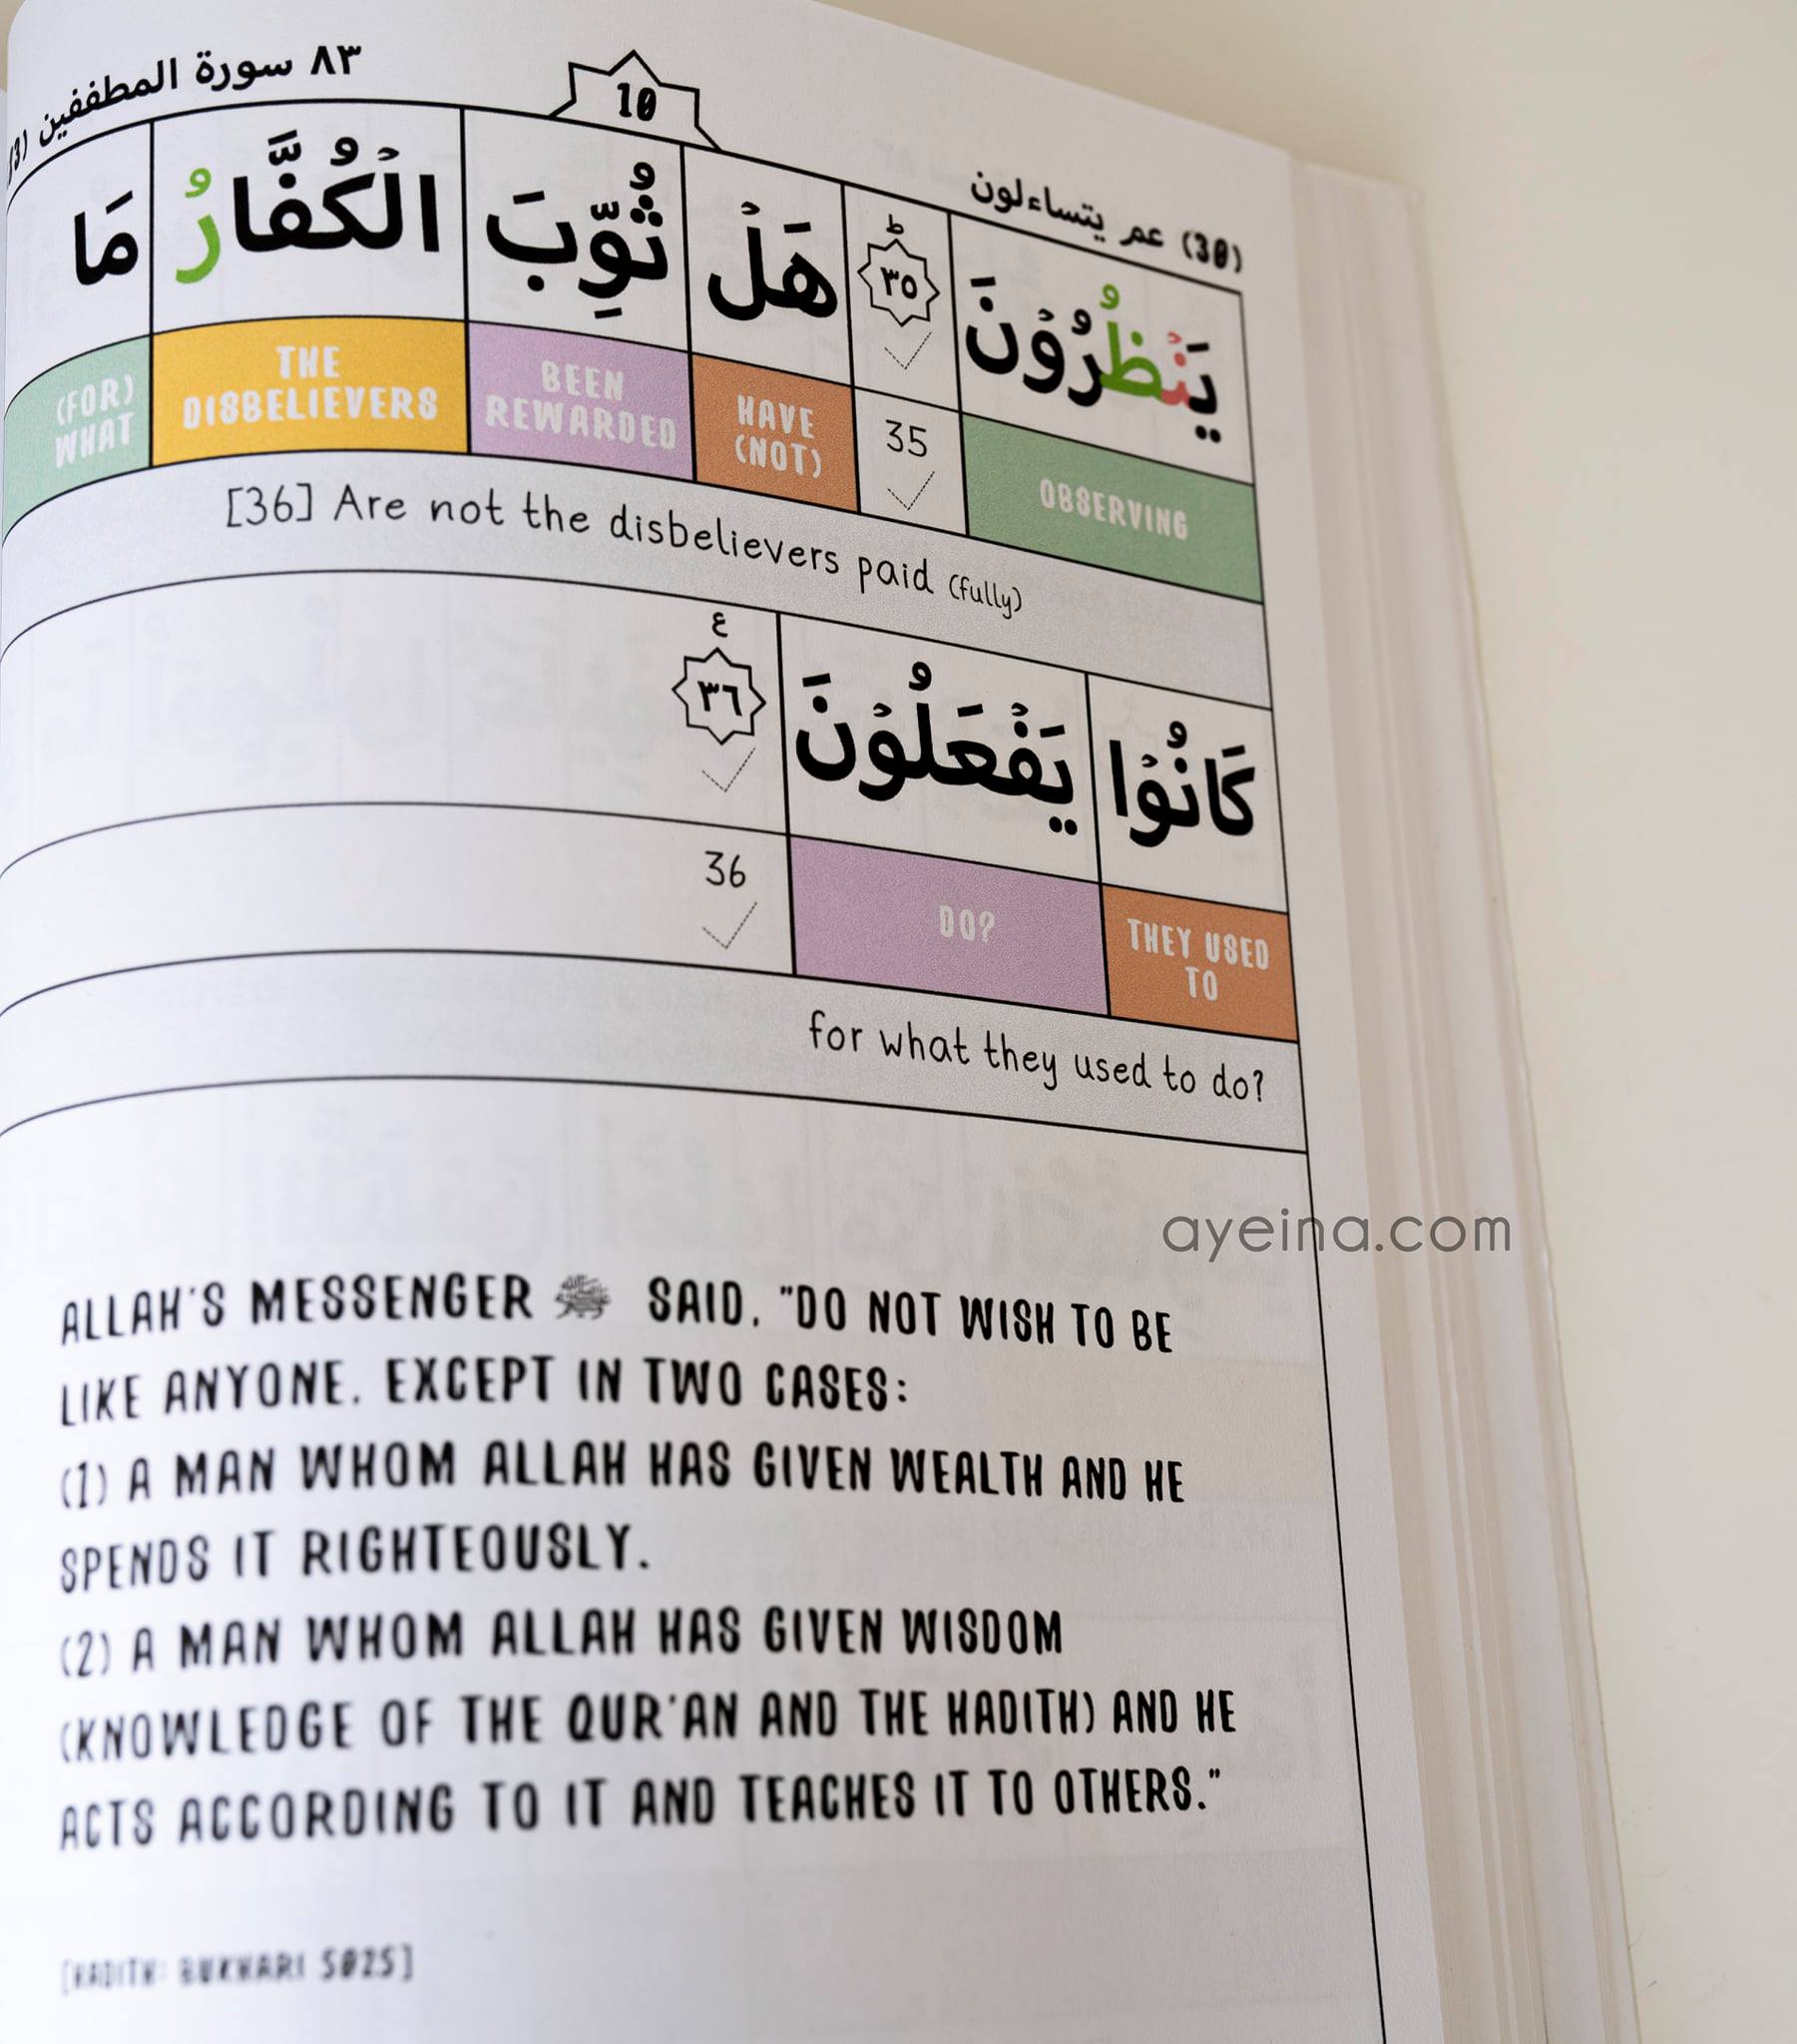 (30) عم يتساءلون
10
٨٣ سورة المطففين
يَنْظُرُوْنَ ٣٥ ط هَلْ ثُوِّبَ الْكُفَّارُ مَا
OBSERVING 35 HAVE (NOT) BEEN REWARDED THE DISBELIEVERS (FOR) WHAT
[36] Are not the disbelievers paid (fully)
كَانُوْا يَفْعَلُوْنَ ٣٦ ع
THEY USED TO DO? 36
for what they used to do?
ayeina.com
ALLAH'S MESSENGER ﷺ SAID, "DO NOT WISH TO BE
LIKE ANYONE, EXCEPT IN TWO CASES:
(1) A MAN WHOM ALLAH HAS GIVEN WEALTH AND HE
SPENDS IT RIGHTEOUSLY.
(2) A MAN WHOM ALLAH HAS GIVEN WISDOM
(KNOWLEDGE OF THE QUR'AN AND THE HADITH) AND HE
ACTS ACCORDING TO IT AND TEACHES IT TO OTHERS."
[HADITH: BUKHARI 5025]